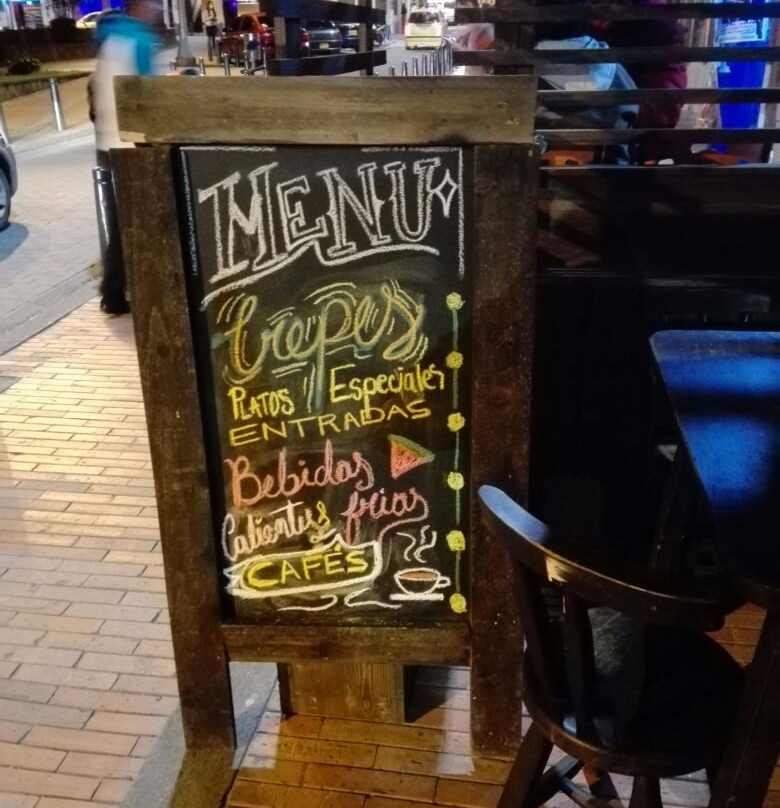 MENU
Crepes
PLATOS Especiales
ENTRADAS
Bebidas
Calientes y frias
CAFÉS